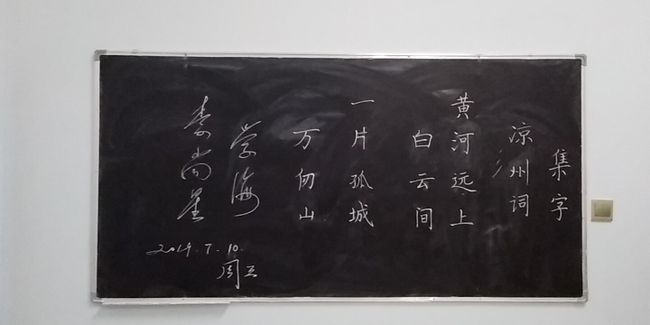 集字
凉州词
黄河远上
白云间
一片孤城
万仞山
学海
2019.7.10
周三